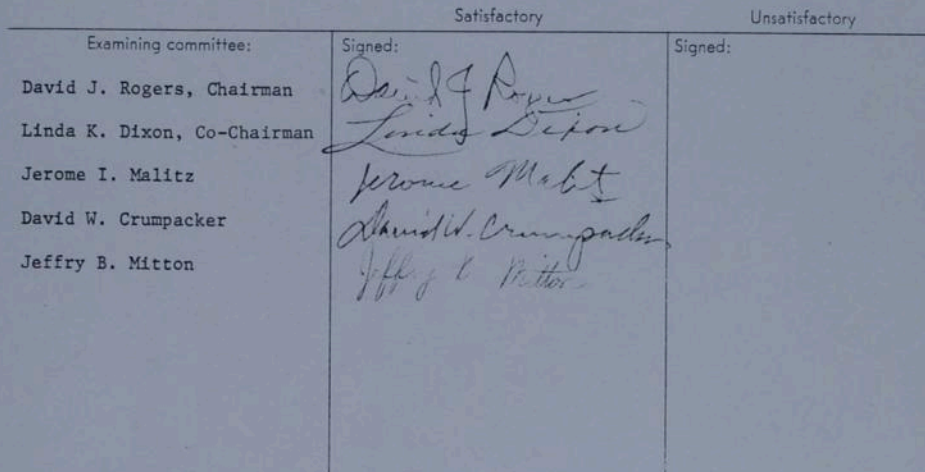 Satisfactory Unsatisfactory
Examining committee: Signed: Signed:
David J. Rogers, Chairman David J Rogers
Linda K. Dixon, Co-Chairman Linda Dixon
Jerome I. Malitz Jerome Malitz
David W. Crumpacker David W. Crumpacker
Jeffry B. Mitton Jeffry B Mitton